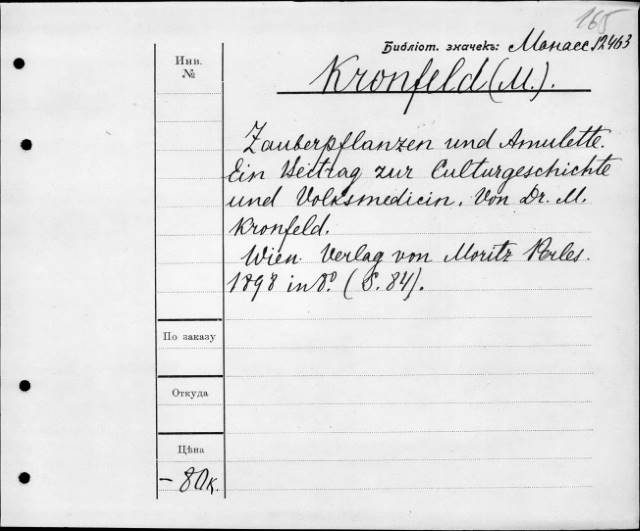 165
Библіот. значекъ: Манасс 12463
Инв.
№
Kronfeld (M.).
Zauberpflanzen und Amulette.
Ein Beitrag zur Culturgeschichte
und Volksmedicin. Von Dr. M.
Kronfeld.
Wien. Verlag von Moritz Perles.
1898 in 8º. (S. 84).
По заказу
Откуда
Цѣна
— 80к.